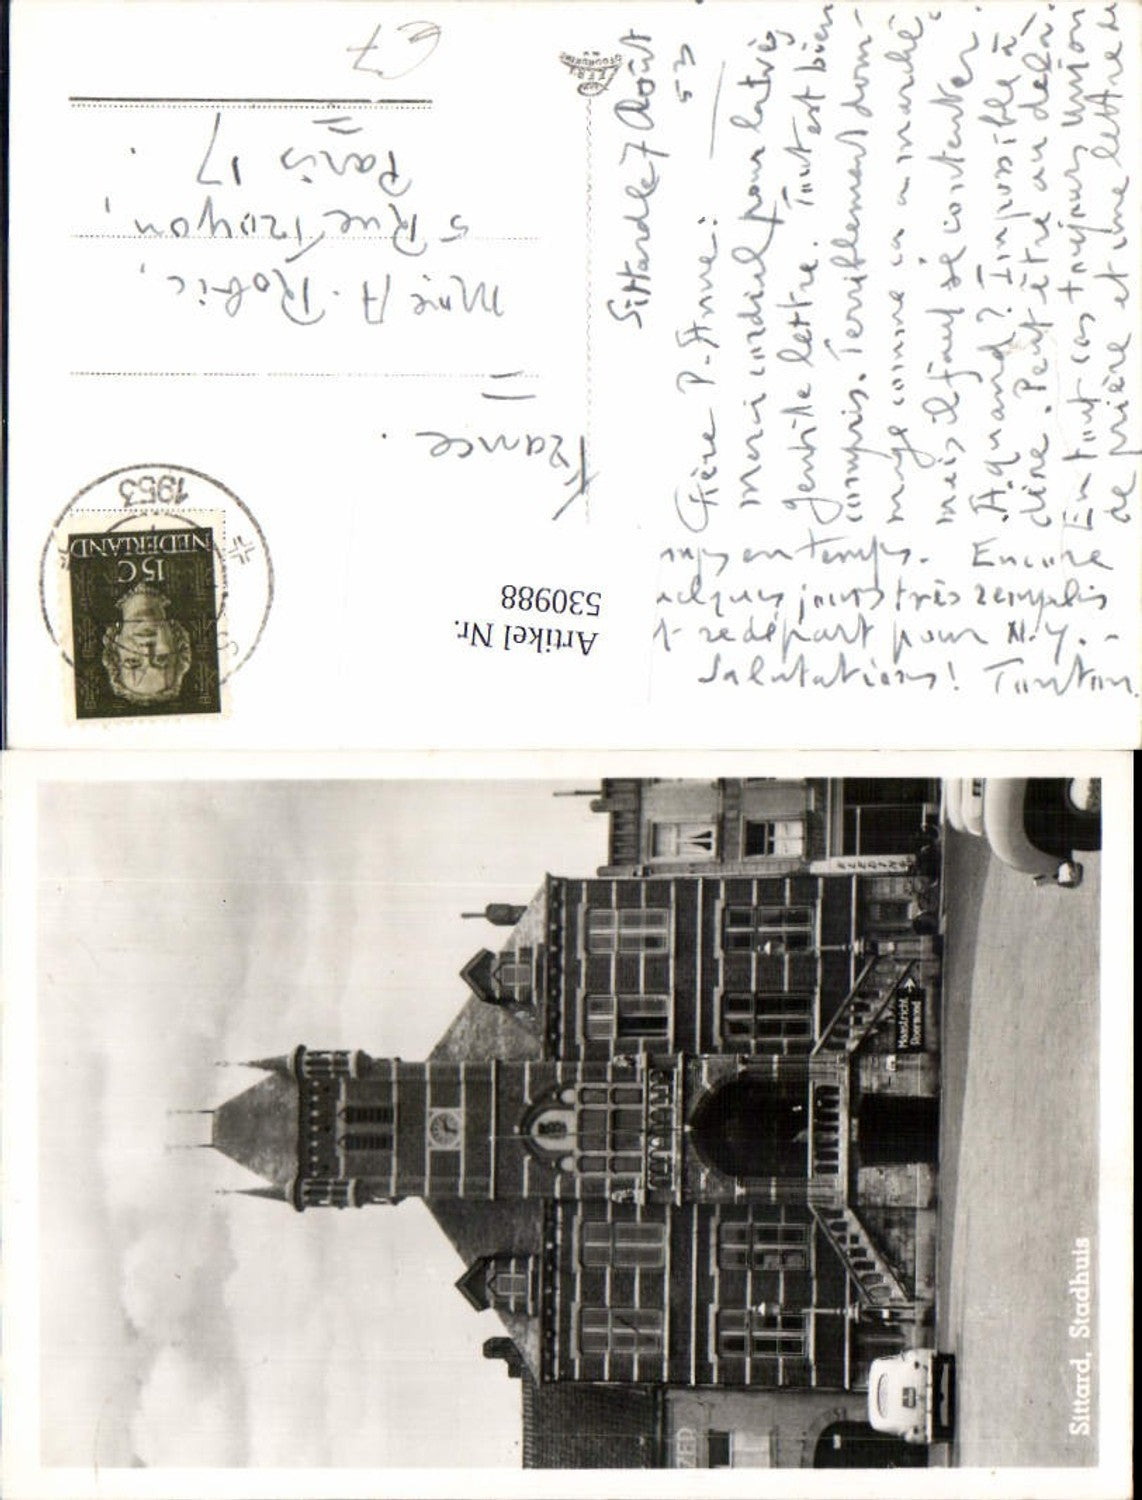 €7
Mme A. Robic,
5 Rue Troyon,
Paris 17.
France.
1953
NEDERLAND
15 C
Artikel Nr.
530988
Sittard le 7 Août
53
Chère P. Anne:
merci cordial pour la très
gentille lettre. Tout est bien
compris. Terriblement dom-
mage comme ça a marché
mais il faut se contenter.
A quand? Impossible à
dire. Peut être au delà.
En tout cas toujours union
de prière et une lettre de
en temps. Encore
jours très remplis
redépart pour N.Y. -
Salutations! Tonton
Maastricht
Roermond
Sittard, Stadhuis